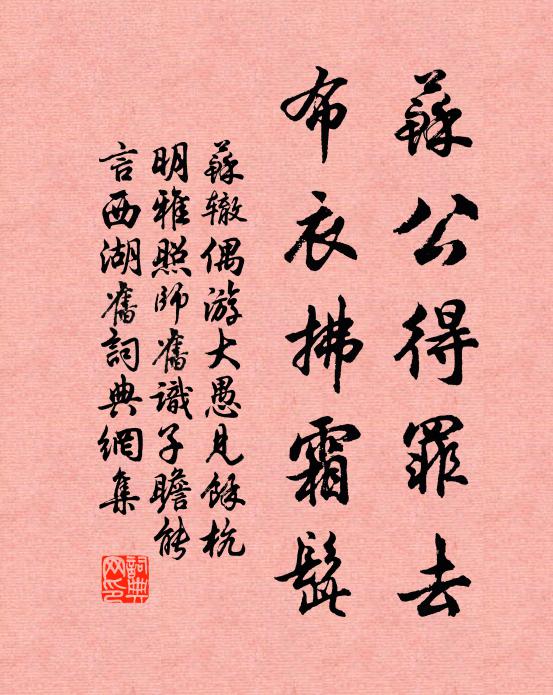 蘇公得罪去
布衣拂霜髭
蘇辙偶游大愚見餘杭
明雅照師舊識子瞻能
言西湖舊詞典網集
詞典网印